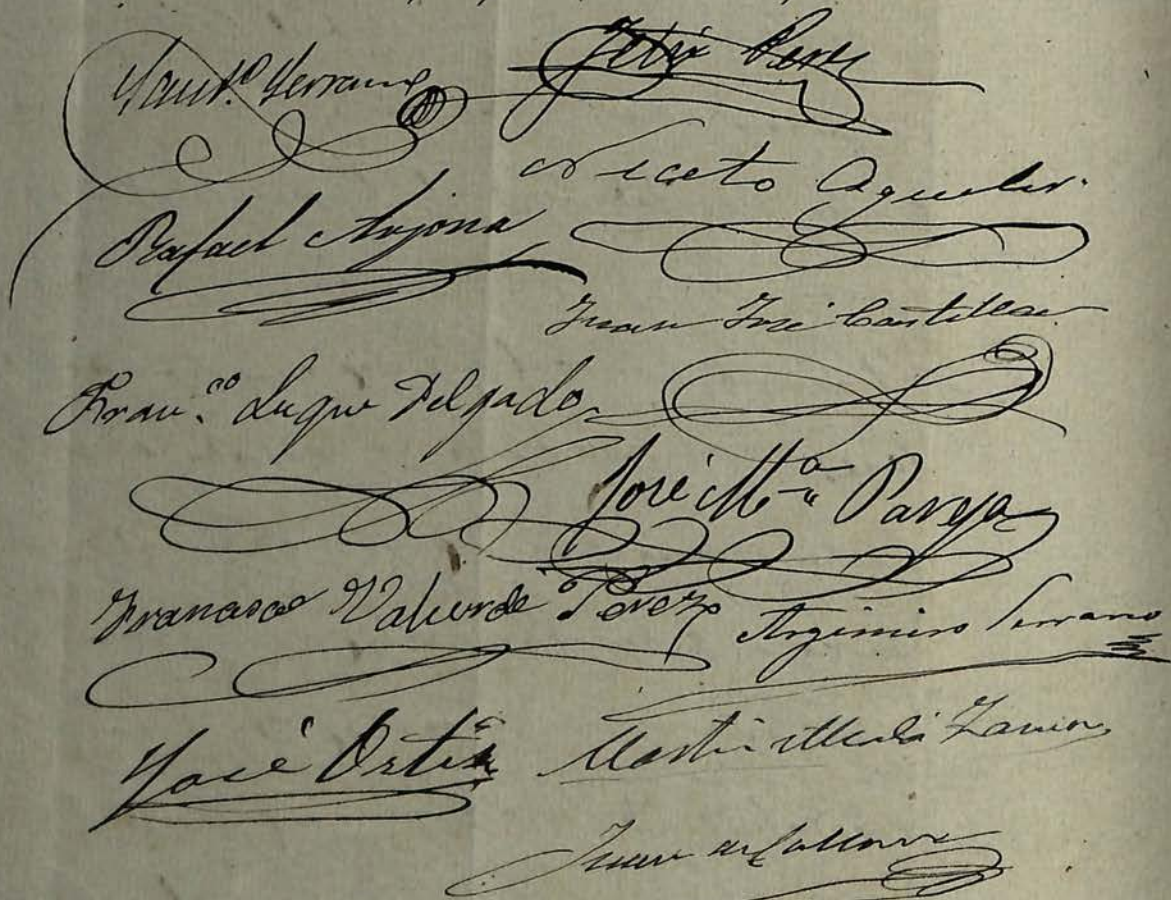 Sant.º Serrano
Felix Perez
Niceto Aguilar.
Rafael Arjona
Juan José Castilla
Fran.co Luque Delgado
José M.ª Pareja
Francisco Valverde Perez
Argimiro Serrano
José Ortiz
Martin Alcalá
Juan de